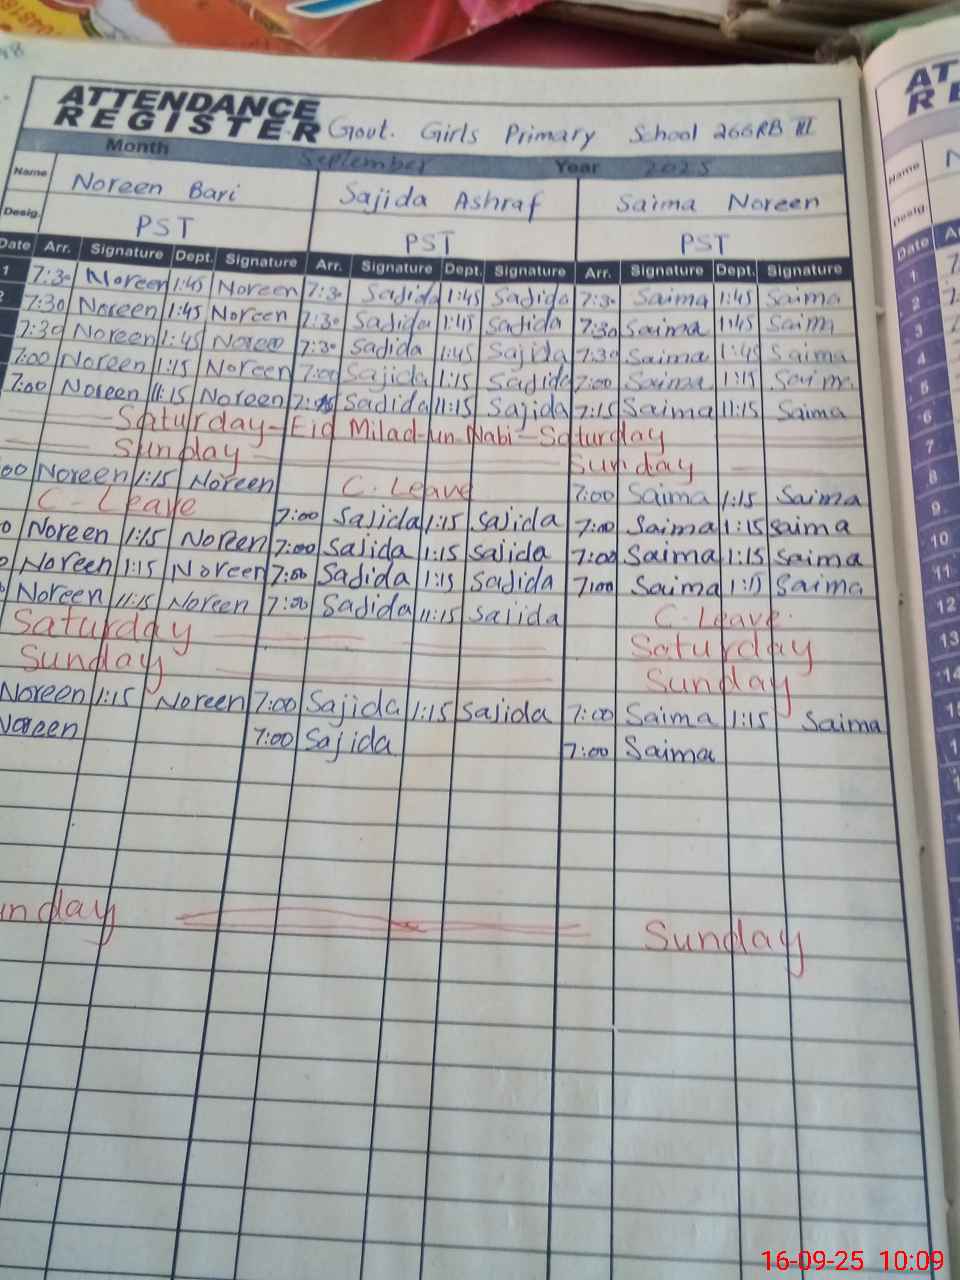 ATTENDANCE
REGISTER Govt. Girls Primary School 266RB III
Month September Year 2025
Name Noreen Bari Sajida Ashraf Saima Noreen
Desig. PST PST PST
Date Arr. Signature Dept. Signature Arr. Signature Dept. Signature Arr. Signature Dept. Signature
1 7:30 Noreen 1:45 Noreen 7:30 Sajida 1:45 Sajida 7:30 Saima 1:45 Saima
2 7:30 Noreen 1:45 Noreen 7:30 Sajida 1:45 Sajida 7:30 Saima 1:45 Saima
7:30 Noreen 1:45 Noreen 7:30 Sajida 1:45 Sajida 7:30 Saima 1:45 Saima
7:00 Noreen 1:15 Noreen 7:00 Sajida 1:15 Sajida 7:00 Saima 1:15 Saima
7:00 Noreen 11:15 Noreen Sajida 11:15 Sajida 7:15 Saima 11:15 Saima
Saturday - Eid Milad-un-Nabi - Saturday
Sunday Sunday
00 Noreen 1:15 Noreen C. Leave 7:00 Saima 1:15 Saima
C - Leave 7:00 Sajida 1:15 Sajida 7:00 Saima 1:15 Saima
0 Noreen 1:15 Noreen 7:00 Sajida 1:15 Sajida 7:00 Saima 1:15 Saima
Noreen 1:15 Noreen 7:00 Sajida 1:15 Sajida 7:00 Saima 1:15 Saima
Noreen 11:15 Noreen 7:00 Sajida 11:15 Sajida C. Leave.
Saturday Saturday
Sunday Sunday
Noreen 1:15 Noreen 7:00 Sajida 1:15 Sajida 7:00 Saima 1:15 Saima
Noreen 7:00 Sajida 7:00 Saima
unday Sunday
AT
RE
Name N
Desig.
Date A
1 7
2 7
3
4
5
6
7
8
9
10
11
12
13
14
15
1
1
16-09-25 10:09